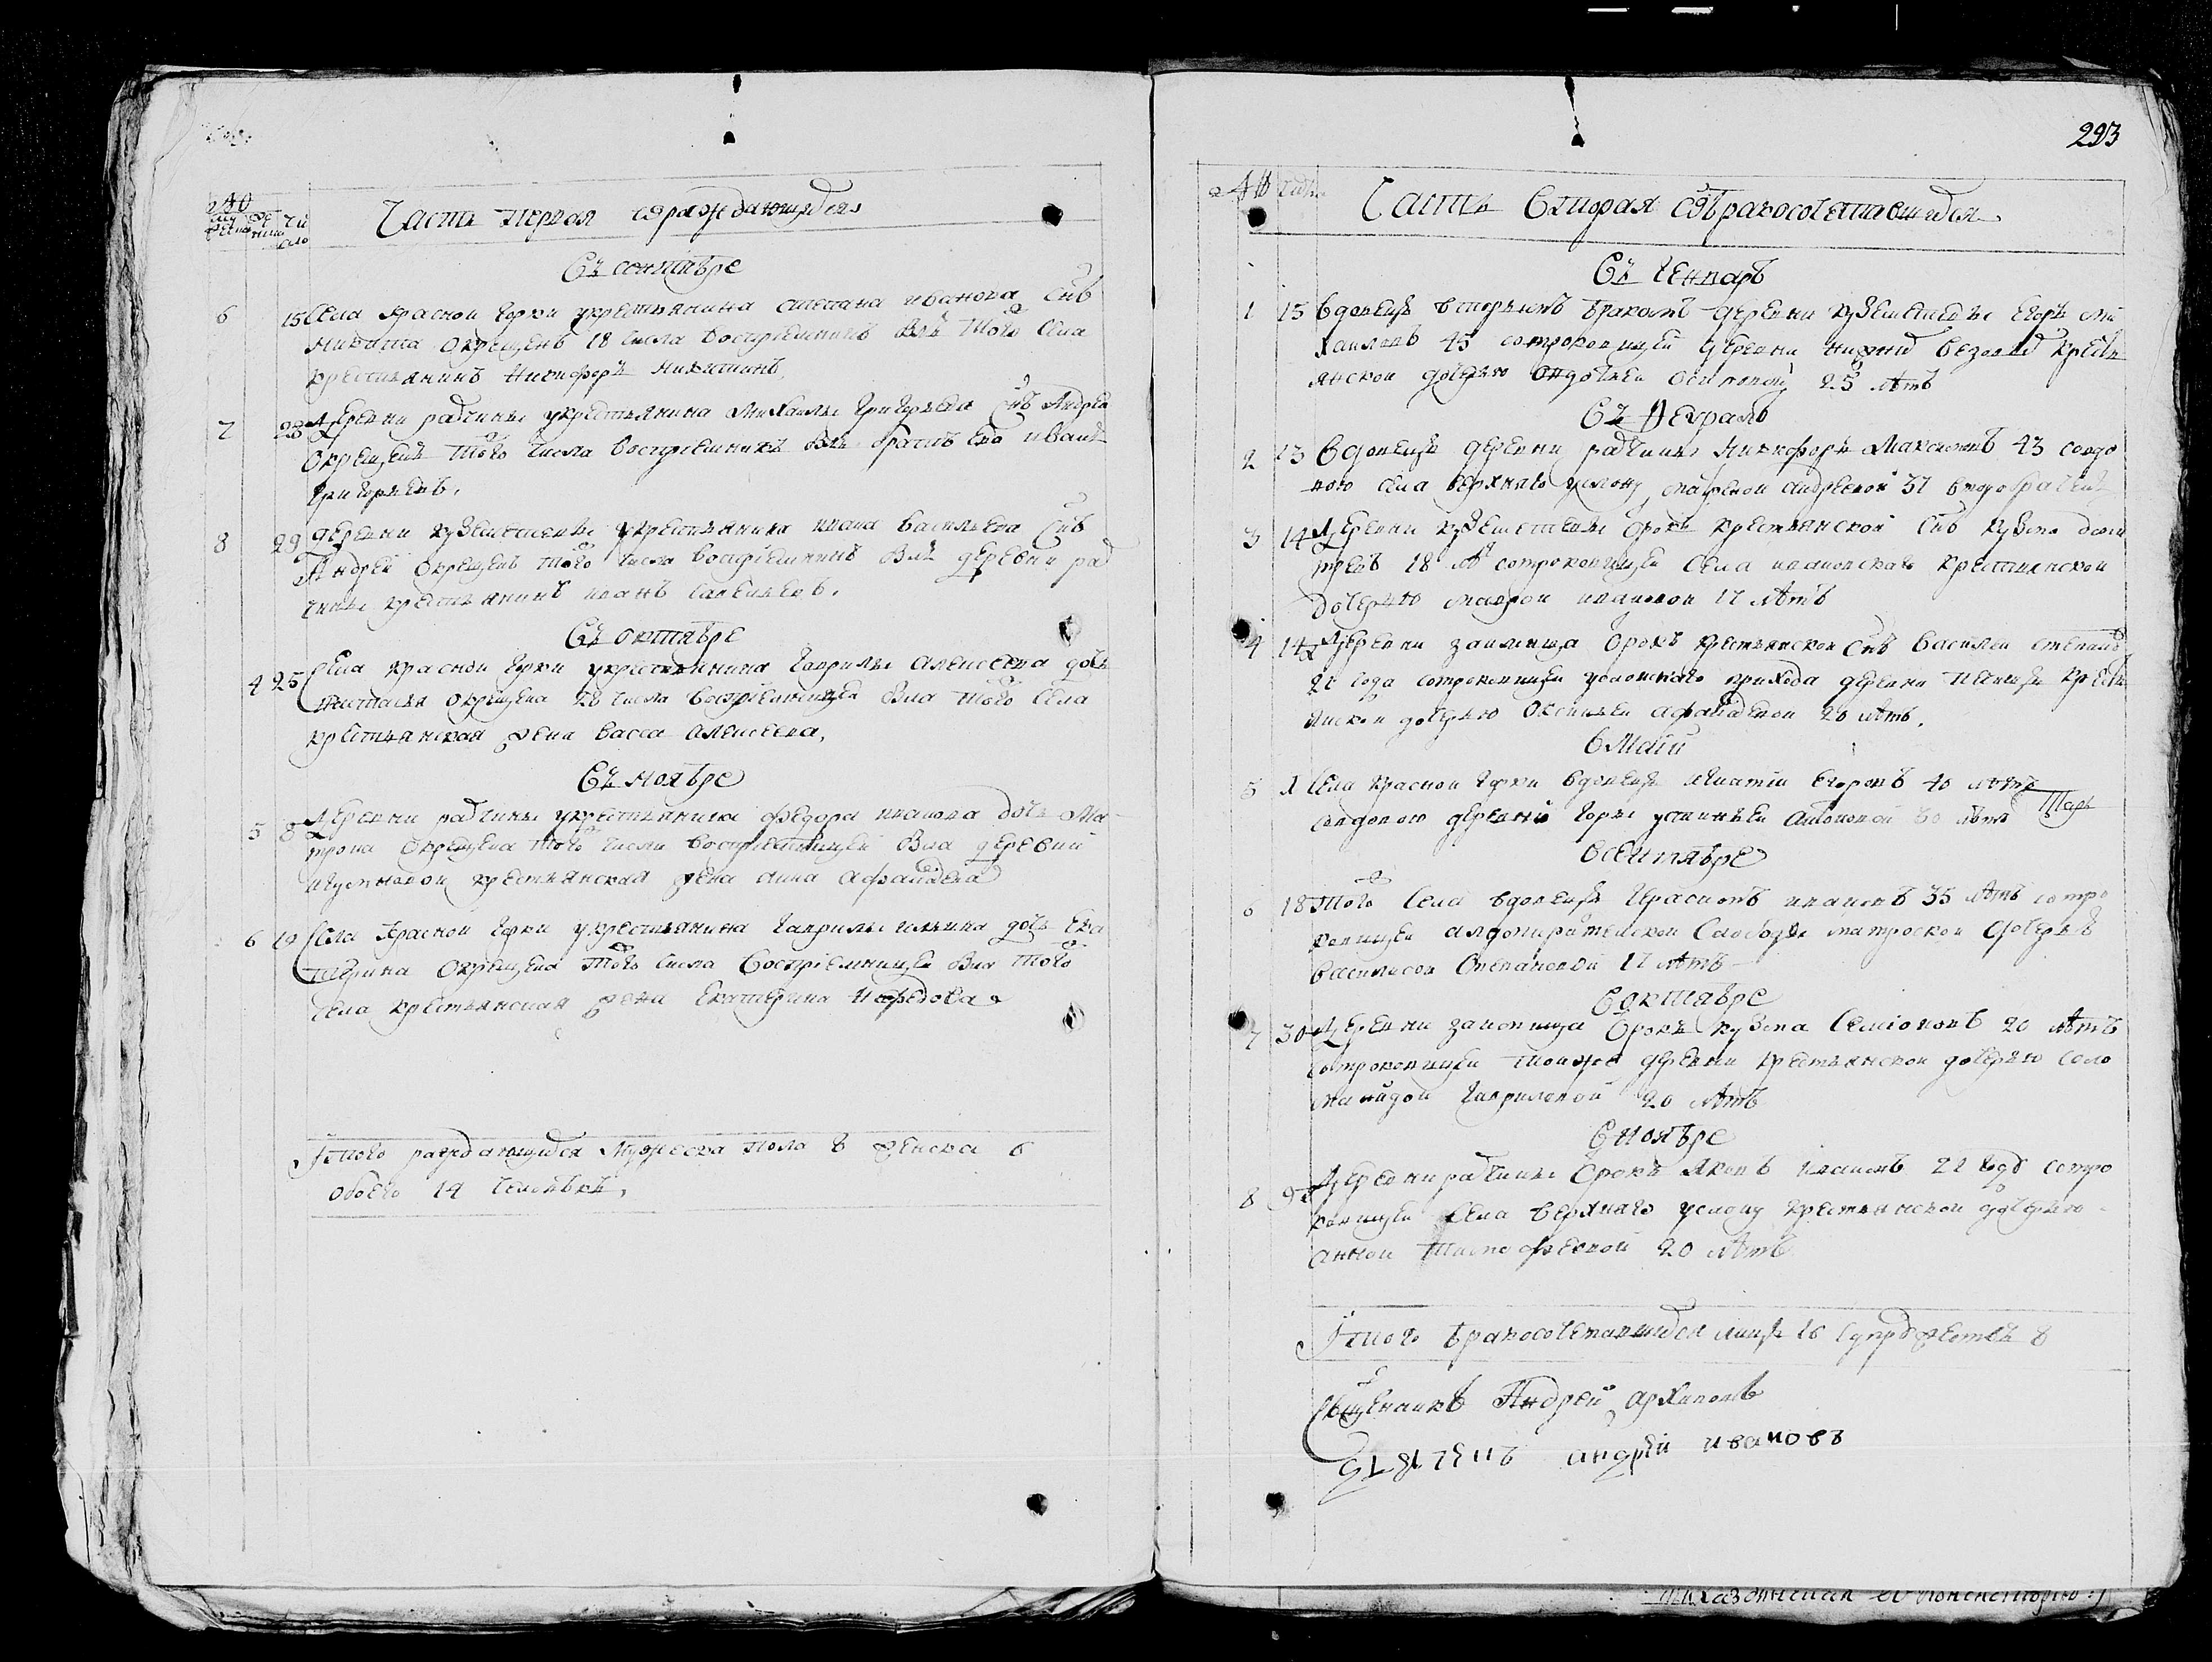 Часть первая о раждающихся
Въ сентябре
6 15 Села Красной Горки у крестьянина Степана Иванова снъ
Никита окрещенъ 18 числа восприемникъ былъ того села
крестьянинъ Никифоръ Никитинъ
7 23 Деревни Ратчины у крестьянина Михаилы Григорьева снъ Андреи
окрещенъ того числа восприемникъ былъ братъ ево Иванъ
Григорьевъ.
8 29 деревни у крестьянина Ивана Васильева снъ
Андреи окрещенъ того числа восприемникъ былъ деревни рат
чины крестьянинъ Иванъ Савельевъ.
Въ октябре
4 25 Села Красной Горки у крестьянина Гаврилы Алексеева дочь
Настасья окрещена 28 числа восприемницей была того села
крестьянская жена Васса Алексеева,
Въ ноябре
5 8 Деревни ратчины у крестьянина Федора Иванова дочь Ма
трона окрещена того числа восприемницей была деревни
крестьянская жена Анна
6 19 Села Красной Горки у крестьянина Гаврилы Ильина дочь Ека
терина окрещена того числа восприемницей была того
села крестьянская жена Екатерина Нефедова
Итого раждающихся мужеска пола 8 женска 6
обоего 14 человекъ,
293
Часть вторая о бракосочетавшихся
Въ генваръ
1 15 вдовецъ вторымъ бракомъ деревни Егоръ Ми
хаиловъ 45 с отроковицей деревни крестъ
янской дочерью Овдотьей Осиповой 25 летъ
Въ февралъ
2 13 Вдовецъ деревни ратчины Никифоръ Максимовъ 43 со вдо
вою села Верхняго Услону Андреевой 37
3 14 Деревни отрокъ крестьянской снъ Кузма Дми
треевъ 18 ле с отроковицей села Ивановскаго крестьянской
дочерью Маврой Ивановой 17 летъ
4 14 Деревни Займища отрокъ крестьянской снъ Василей Степановъ
21 года с отроковицей Услонскаго прихода деревни кресть
янской дочерью Оксиньей 20 летъ.
В маии
5 1 Села Красной Горки вдовецъ Игнатий Егоровъ 40 летъ
со вдовою деревни Горы Устиньей Антоновой 30 летъ
В сентябре
6 18 того села вдовецъ Герасимъ Ивановъ 35 летъ с отро
ковицей Адмиралтейской Слободы матроской дочерью
Василисой Степановой 17 летъ
В октябре
7 30 Деревни Займища отрокъ Кузма Семионовъ 20 летъ
с отроковицей той же деревни крестьянской дочерью Соло
манидой Гавриловой 20 летъ
В ноябре
8 9 Деревни ратчины отрокъ Яковъ Ивановъ 21 году с отро
ковицей села Верхняго Услону крестьянской дочерью
Анной Тимофеевой 20 летъ
Итого бракосочетавшихся лицъ 16 супружествъ 8
Священникъ Андрей Архиповъ
Андрей Ивановъ